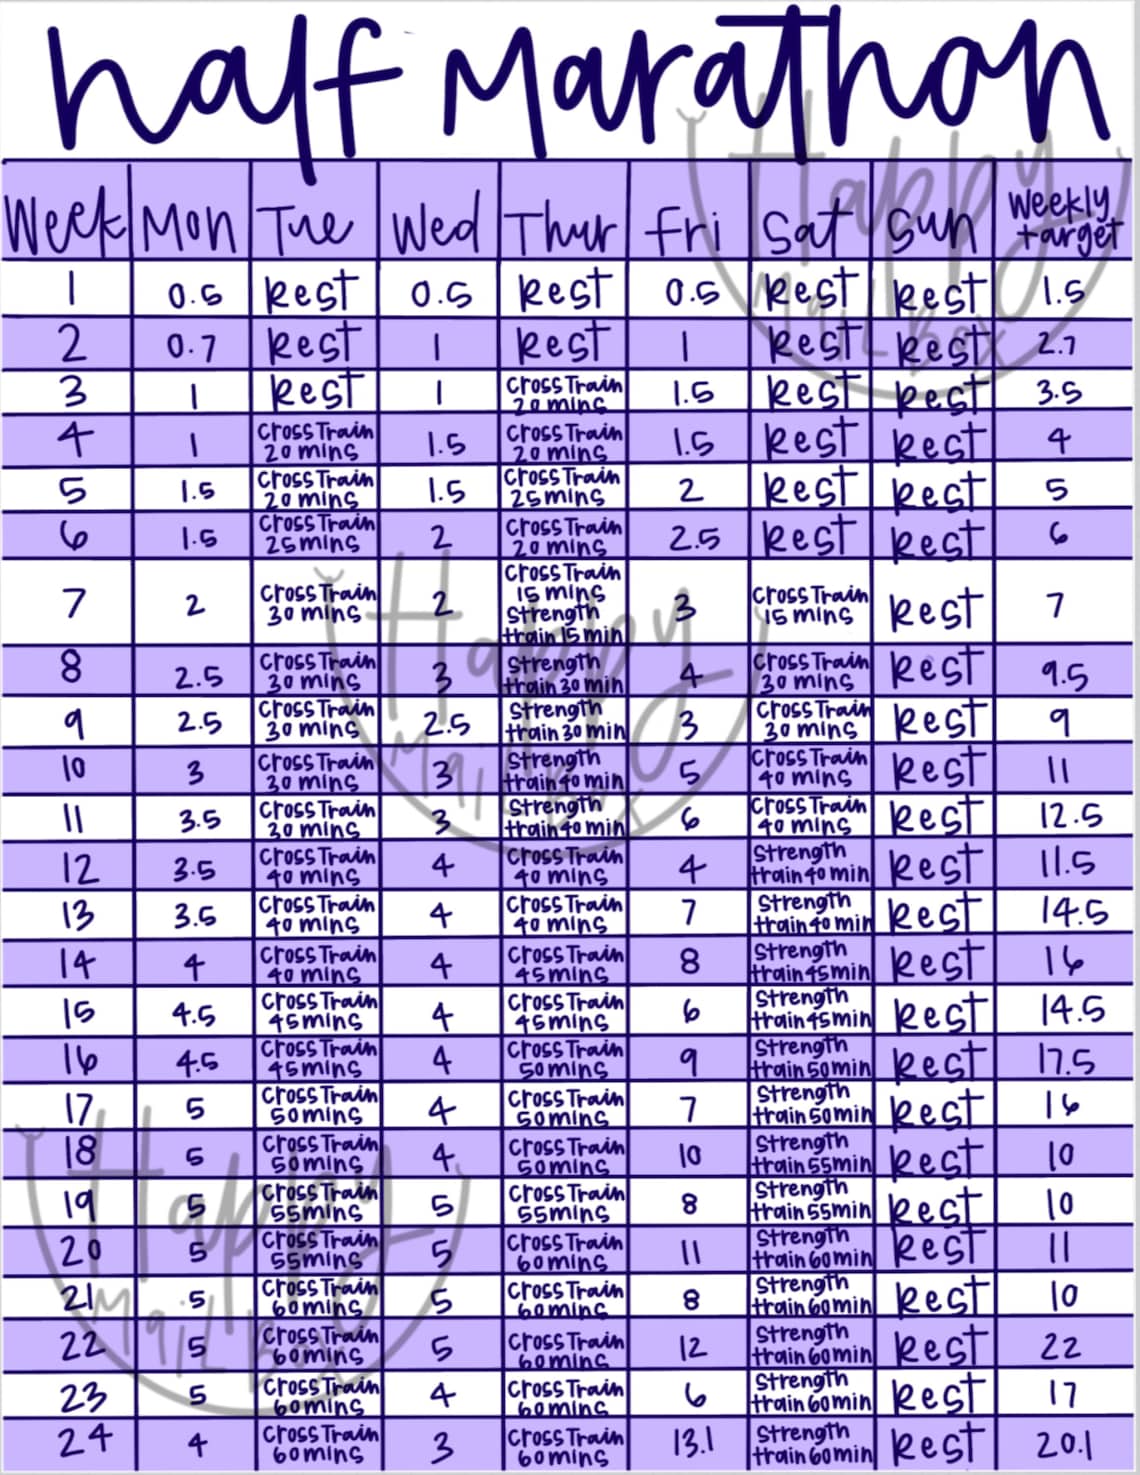 Half Marathon
Week Mon Tue Wed Thur Fri Sat Sun Weekly target
1 0.5 Rest 0.5 Rest 0.5 Rest Rest 1.5
2 0.7 Rest 1 Rest 1 Rest Rest 2.7
3 1 Rest 1 Cross Train 20 mins 1.5 Rest Rest 3.5
4 1 Cross Train 20 mins 1.5 Cross Train 20 mins 1.5 Rest Rest 4
5 1.5 Cross Train 20 mins 1.5 Cross Train 25 mins 2 Rest Rest 5
6 1.5 Cross Train 25 mins 2 Cross Train 20 mins 2.5 Rest Rest 6
7 2 Cross Train 30 mins 2 Cross Train 15 mins Strength train 15 min 3 Cross Train 15 mins Rest 7
8 2.5 Cross Train 30 mins 3 Strength train 30 min 4 Cross Train 30 mins Rest 9.5
9 2.5 Cross Train 30 mins 2.5 Strength train 30 min 3 Cross Train 30 mins Rest 9
10 3 Cross Train 30 mins 3 Strength train 40 min 5 Cross Train 40 mins Rest 11
11 3.5 Cross Train 30 mins 3 Strength train 40 min 6 Cross Train 40 mins Rest 12.5
12 3.5 Cross Train 40 mins 4 Cross Train 40 mins 4 Strength train 40 min Rest 11.5
13 3.5 Cross Train 40 mins 4 Cross Train 40 mins 7 Strength train 40 min Rest 14.5
14 4 Cross Train 40 mins 4 Cross Train 45 mins 8 Strength train 45 min Rest 16
15 4.5 Cross Train 45 mins 4 Cross Train 45 mins 6 Strength train 45 min Rest 14.5
16 4.5 Cross Train 45 mins 4 Cross Train 50 mins 9 Strength train 50 min Rest 17.5
17 5 Cross Train 50 mins 4 Cross Train 50 mins 7 Strength train 50 min Rest 16
18 5 Cross Train 50 mins 4 Cross Train 50 mins 10 Strength train 55 min Rest 10
19 5 Cross Train 55 mins 5 Cross Train 55 mins 8 Strength train 55 min Rest 10
20 5 Cross Train 55 mins 5 Cross Train 60 mins 11 Strength train 60 min Rest 11
21 5 Cross Train 60 mins 5 Cross Train 60 mins 8 Strength train 60 min Rest 10
22 5 Cross Train 60 mins 5 Cross Train 60 mins 12 Strength train 60 min Rest 22
23 5 Cross Train 60 mins 4 Cross Train 60 mins 6 Strength train 60 min Rest 17
24 4 Cross Train 60 mins 3 Cross Train 60 mins 13.1 Strength train 60 min Rest 20.1
Happy
MailBox
Happy
MailBox
Happy
MailBox